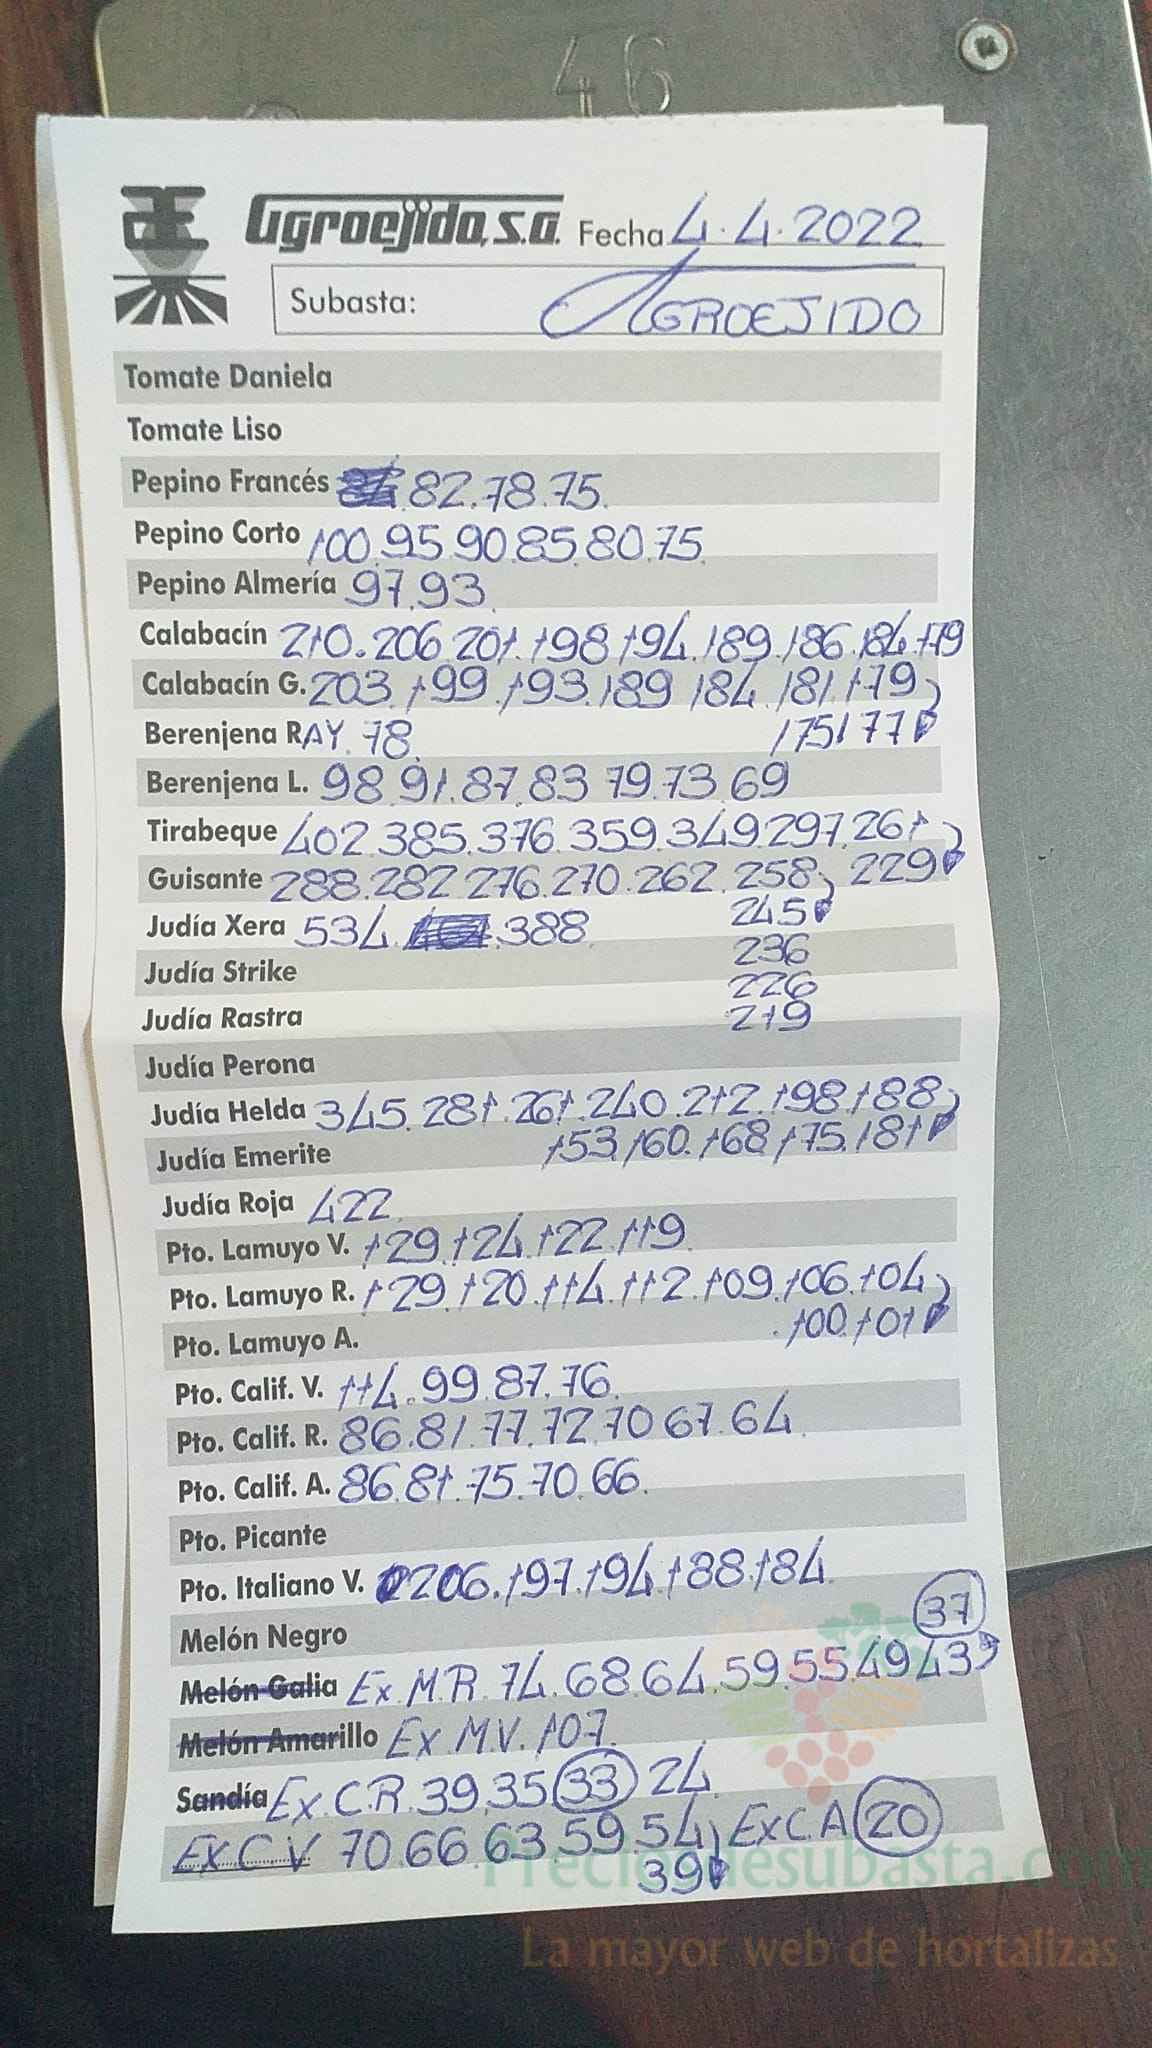 46
Agroejido, S.A. Fecha 4.4.2022
Subasta: AGROEJIDO
Tomate Daniela
Tomate Liso
Pepino Francés 82.78.75.
Pepino Corto 100.95.90.85.80.75
Pepino Almería 97.93
Calabacín 210.206.201.198.194.189.186.184.179
Calabacín G. 203.199.193.189.184.181.179
Berenjena RAY.78 175.177
Berenjena L. 98.91.87.83.79.73.69
Tirabeque 402.385.376.359.349.297.261
Guisante 288.282.276.270.262.258 229
245
Judía Xera 534. 388
236
Judía Strike
226
Judía Rastra
219
Judía Perona
Judía Helda 345.281.261.240.212.198.188
Judía Emerite 153.160.168.175.181
Judía Roja 422
Pto. Lamuyo V. 129.124.122.119
Pto. Lamuyo R. 129.120.114.112.109.106.104
Pto. Lamuyo A. .100.101
Pto. Calif. V. 114.99.87.76.
Pto. Calif. R. 86.81.77.72.70.67.64
Pto. Calif. A. 86.81.75.70.66.
Pto. Picante
Pto. Italiano V. 206.197.194.188.184
37
Melón Negro
Melón Galia Ex.M.R. 74.68.64.59.55.49.43
Melón Amarillo Ex.M.V. 107
Sandía Ex.C.R. 39.35 33 24
EX C.V 70.66.63.59.54 ExC.A 20
39
Preciosdesubasta.com
La mayor web de hortalizas